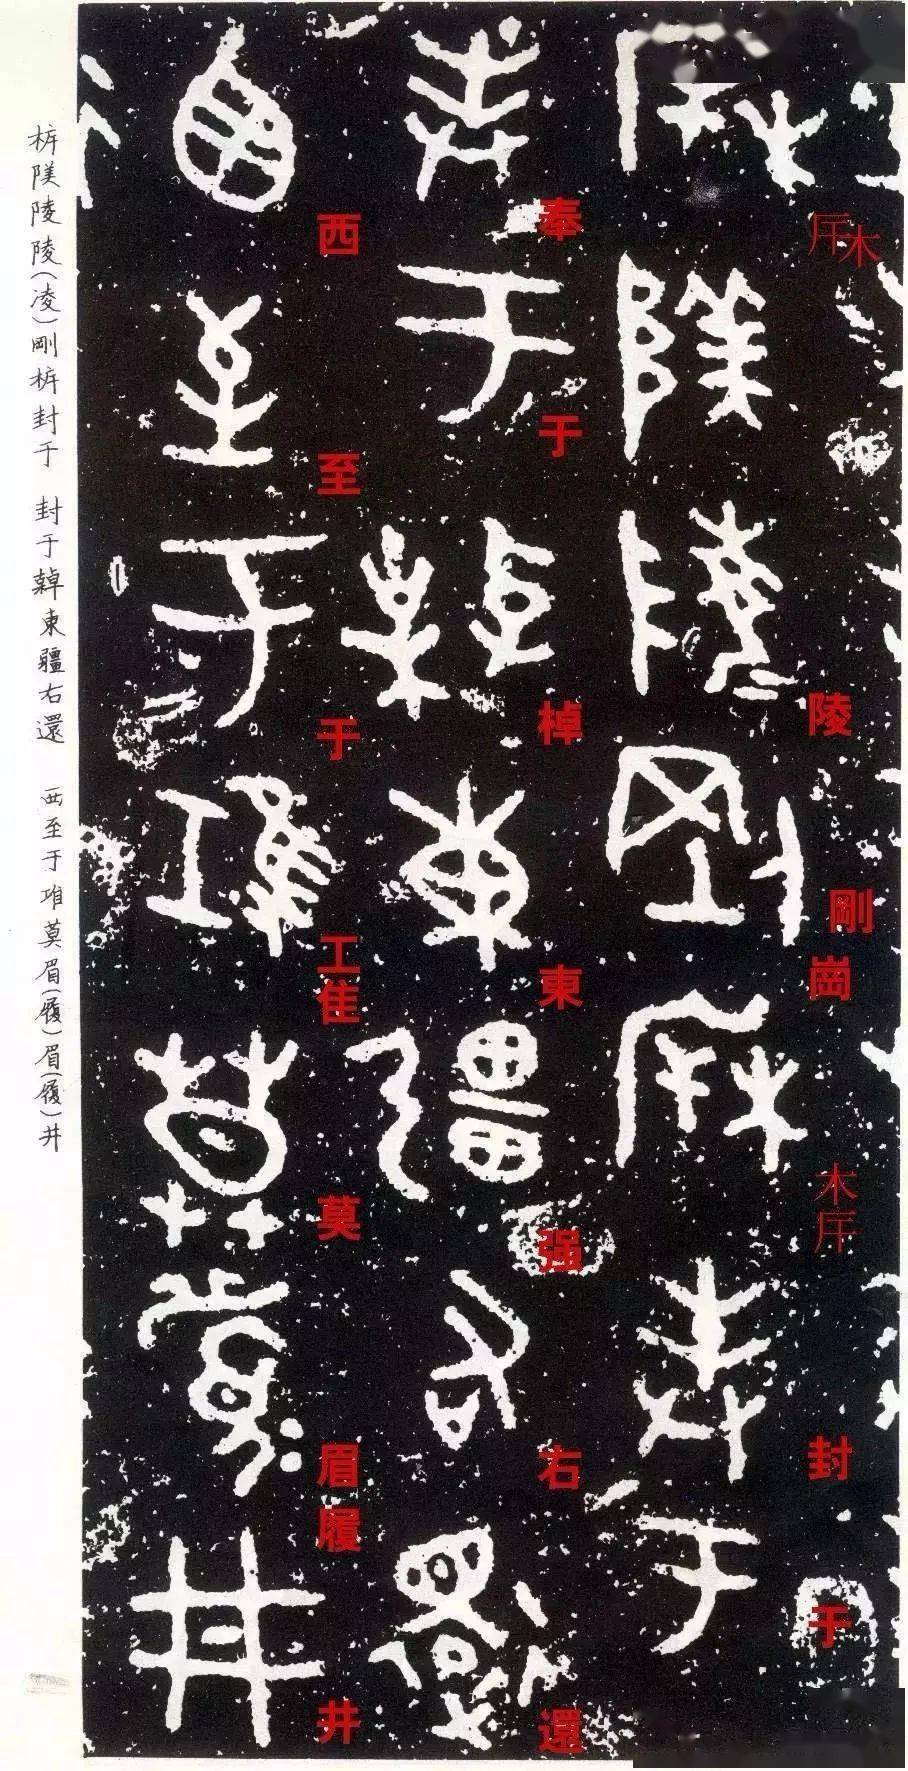 斥木 陵 剛 崗 木斥 封 于
奉 于 棹 東 强 右 還
西 至 于 工隹 莫 眉 履 井
柝陵陵(凌)剛柝封于 封于東疆右還 西至于莫眉(履)眉(履)井